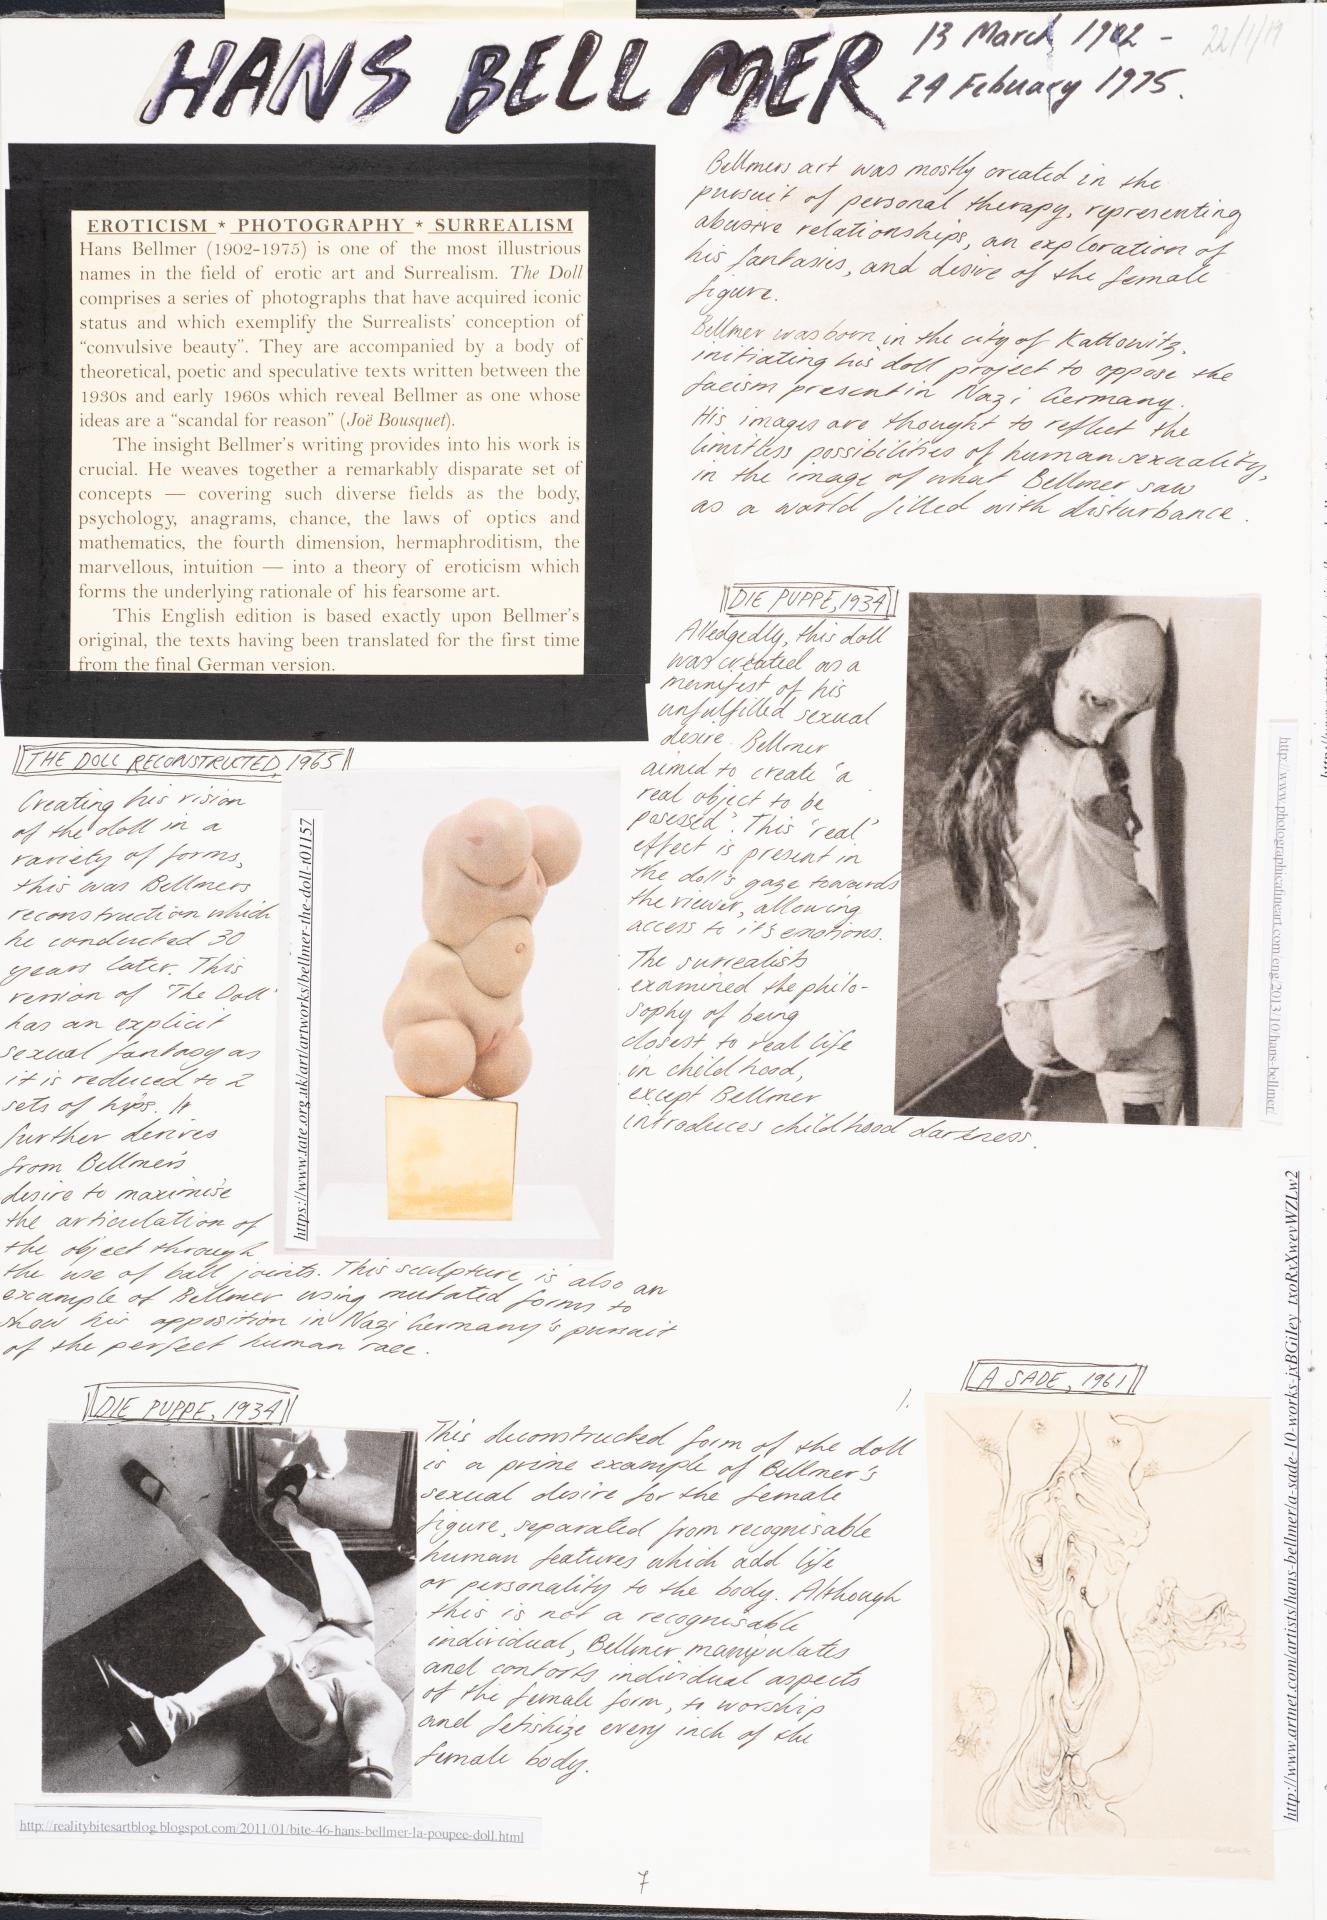 HANS BELLMER
13 March 1902 -
24 Febuary 1975.
22/1/19
EROTICISM * PHOTOGRAPHY * SURREALISM
Hans Bellmer (1902-1975) is one of the most illustrious
names in the field of erotic art and Surrealism. The Doll
comprises a series of photographs that have acquired iconic
status and which exemplify the Surrealists' conception of
"convulsive beauty". They are accompanied by a body of
theoretical, poetic and speculative texts written between the
1930s and early 1960s which reveal Bellmer as one whose
ideas are a "scandal for reason" (Joë Bousquet).
The insight Bellmer's writing provides into his work is
crucial. He weaves together a remarkably disparate set of
concepts — covering such diverse fields as the body,
psychology, anagrams, chance, the laws of optics and
mathematics, the fourth dimension, hermaphroditism, the
marvellous, intuition — into a theory of eroticism which
forms the underlying rationale of his fearsome art.
This English edition is based exactly upon Bellmer's
original, the texts having been translated for the first time
from the final German version.
Bellmers art was mostly created in the
pursuit of personal therapy, representing
abusive relationships, an exploration of
his fantasies, and desire of the female
figure.
Bellmer was born in the city of Kattowitz,
initiating his doll project to oppose the
facism present in Nazi Germany.
His images are thought to reflect the
limitless possibilities of human sexuality,
in the image of what Bellmer saw
as a world filled with disturbance.
DIE PUPPE, 1934
Alledgedly, this doll
was created as a
manifest of his
unfulfilled sexual
desire. Bellmer
aimed to create 'a
real object to be
posessed'. This 'real'
effect is present in
the doll's gaze towards
the viewer, allowing
access to it's emotions.
The surrealists
examined the philo-
sophy of being
closest to real life
in childhood,
except Bellmer
introduces childhood darkness.
http://www.photographicafineart.com/eng/2013/10/hans-bellmer/
THE DOLL RECONSTRUCTED, 1965
Creating his vision
of the doll in a
variety of forms,
this was Bellmers
reconstruction which
he conducted 30
years later. This
version of 'The Doll'
has an explicit
sexual fantasy as
it is reduced to 2
sets of hips. It
further derives
from Bellmer's
desire to maximise
the articulation of
the object through
the use of ball joints. This sculpture is also an
example of Bellmer using mutated forms to
show his opposition in Nazi Germany's pursuit
of the perfect human race.
https://www.tate.org.uk/art/artworks/bellmer-the-doll-t01157
DIE PUPPE, 1934
This deconstructed form of the doll
is a prime example of Bellmer's
sexual desire for the female
figure, separated from recognisable
human features which add life
or personality to the body. Although
this is not a recognisable
individual, Bellmer manipulates
and contorts individual aspects
of the female form, to worship
and fetishize every inch of the
female body.
http://realitybitesartblog.blogspot.com/2011/01/bite-46-hans-bellmer-la-poupee-doll.html
A SADE, 1961
1.
http://www.artnet.com/artists/hans-bellmer/a-sade-10-works-jxBGiley_txoRxXwevWZLw2
7